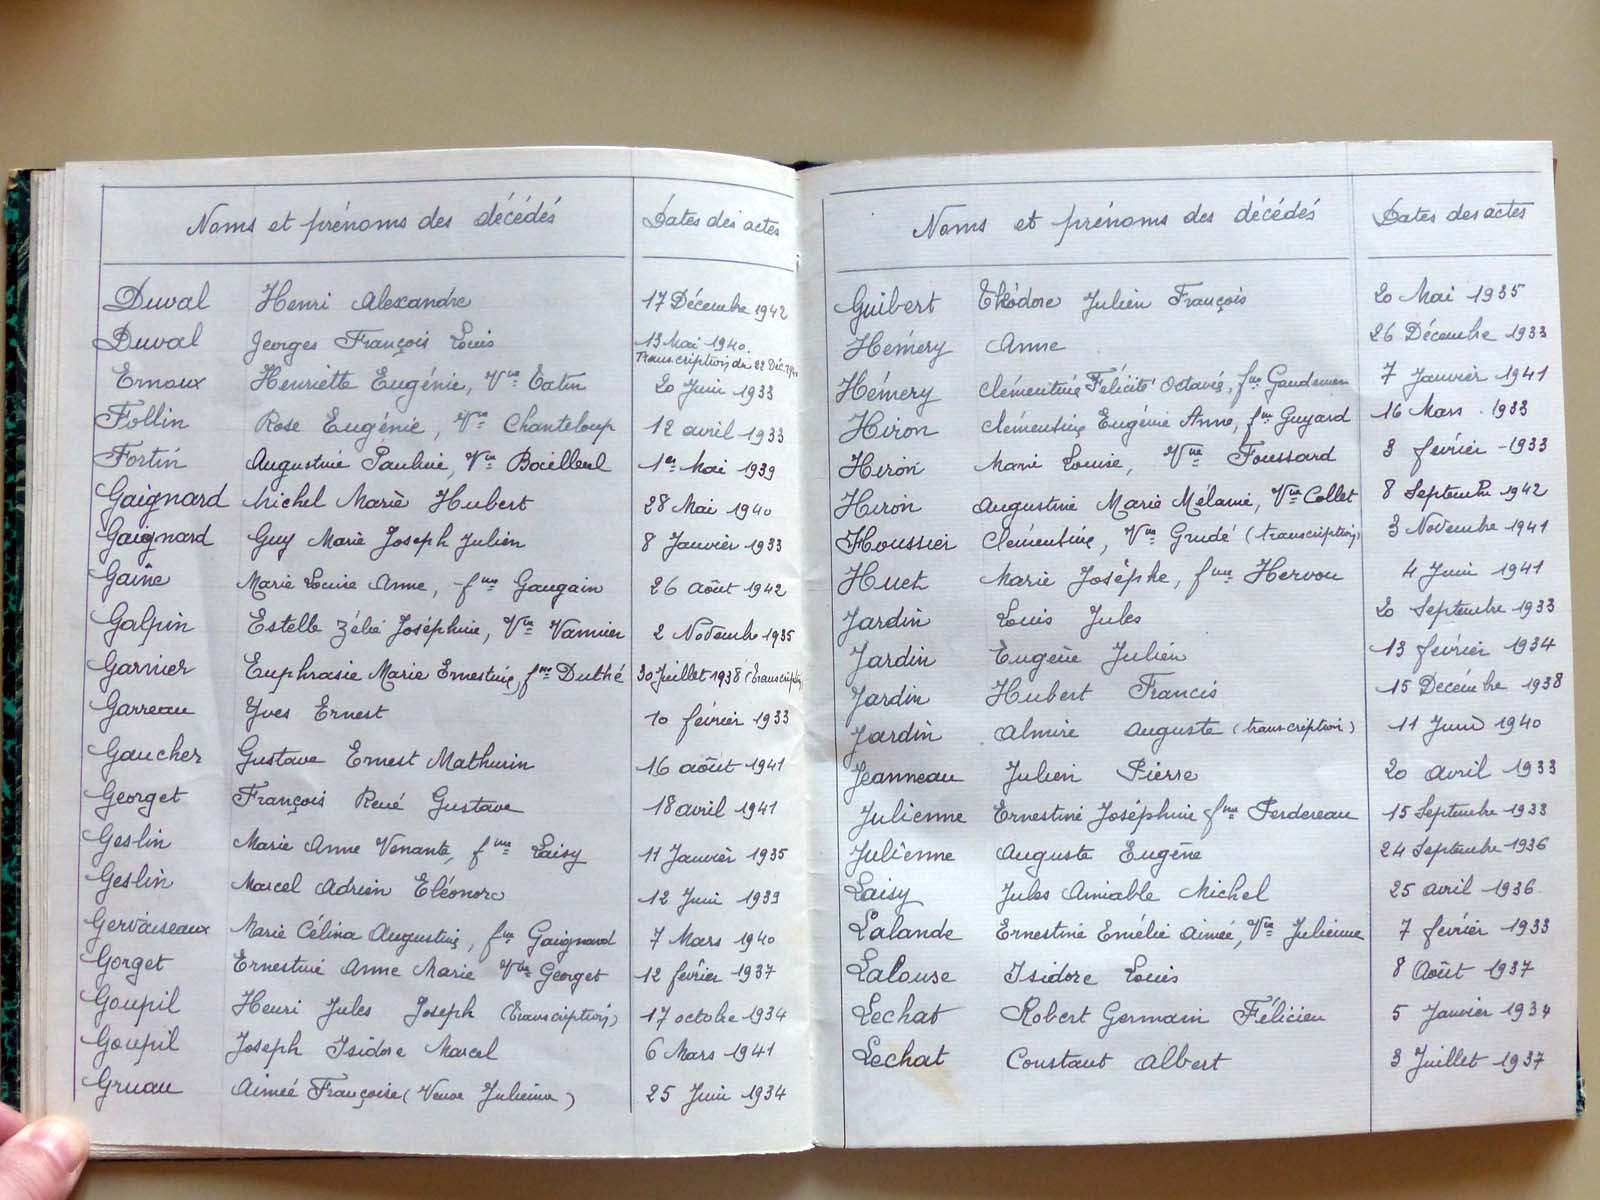 Noms et prénoms des décédés Dates des actes
Duval Henri Alexandre 17 Décembre 1942
Duval Georges François Louis 13 Mai 1940.
Transcription du 22 Déc.
Ernoux Henriette Eugénie, Vve Tatin 20 Juin 1933
Follin Rose Eugénie, Vve Chanteloup 12 avril 1933
Fortin Augustine Pauline, Vve Bailleul 1er Mai 1939
Gaignard Michel Marie Hubert 28 Mai 1940
Gaignard Guy Marie Joseph Julien 8 Janvier 1933
Gaîne Marie Louise Anne, fme Gaugain 26 août 1942
Galpin Estelle Zélie Joséphine, Vve Vannier 2 Novembre 1935
Garnier Euphrasie Marie Ernestine, fme Duthé 30 Juillet 1938 (transcription)
Garreau Yves Ernest 10 février 1933
Gaucher Gustave Ernest Mathurin 16 août 1941
Georget François René Gustave 18 avril 1941
Geslin Marie Anne Venante, fme Laisy 11 Janvier 1935
Geslin Marcel Adrien Eléonore 12 Juin 1939
Gervaiseaux Marie Célina Augustine, fme Gaignard 7 Mars 1940
Gorget Ernestine Anne Marie Vve Georget 12 février 1937
Goupil Henri Jules Joseph (transcription) 17 octobre 1934
Goupil Joseph Isidore Marcel 6 Mars 1941
Gruau Aimée Françoise (Veuve Julienne) 25 Juin 1934
Noms et prénoms des décédés Dates des actes
Guibert Théodore Julien François 20 Mai 1935
Hémery Anne 26 Décembre 1933
Hémery Clémentine Félicité Octavie, fme 7 Janvier 1941
Hiron Clémentine Eugénie Anne, fme Guyard 16 Mars 1933
Hiron Marie Louise, Vve Foussard 3 février 1933
Hiron Augustine Marie Mélanie, Vve Collet 8 Septembre 1942
Houssier Clémentine, Vve Grudé (transcription) 3 Novembre 1941
Huet Marie Josèphe, fme Hervou 4 Juin 1941
Jardin Louis Jules 20 Septembre 1933
Jardin Eugène Julien 13 février 1934
Jardin Hubert Francis 15 Décembre 1938
Jardin Almire Auguste (transcription) 11 Juin 1940
Jeanneau Julien Pierre 20 avril 1933
Julienne Ernestine Joséphine fme Perdereau 15 Septembre 1933
Julienne Auguste Eugène 24 Septembre 1936
Laisy Jules Amiable Michel 25 avril 1936
Lalande Ernestine Emélie Aimée, Vve Julienne 7 février 1933
Lalouse Isidore Louis 8 Août 1937
Lechat Robert Germain Félicien 5 Janvier 1934
Lechat Constant Albert 3 Juillet 1937